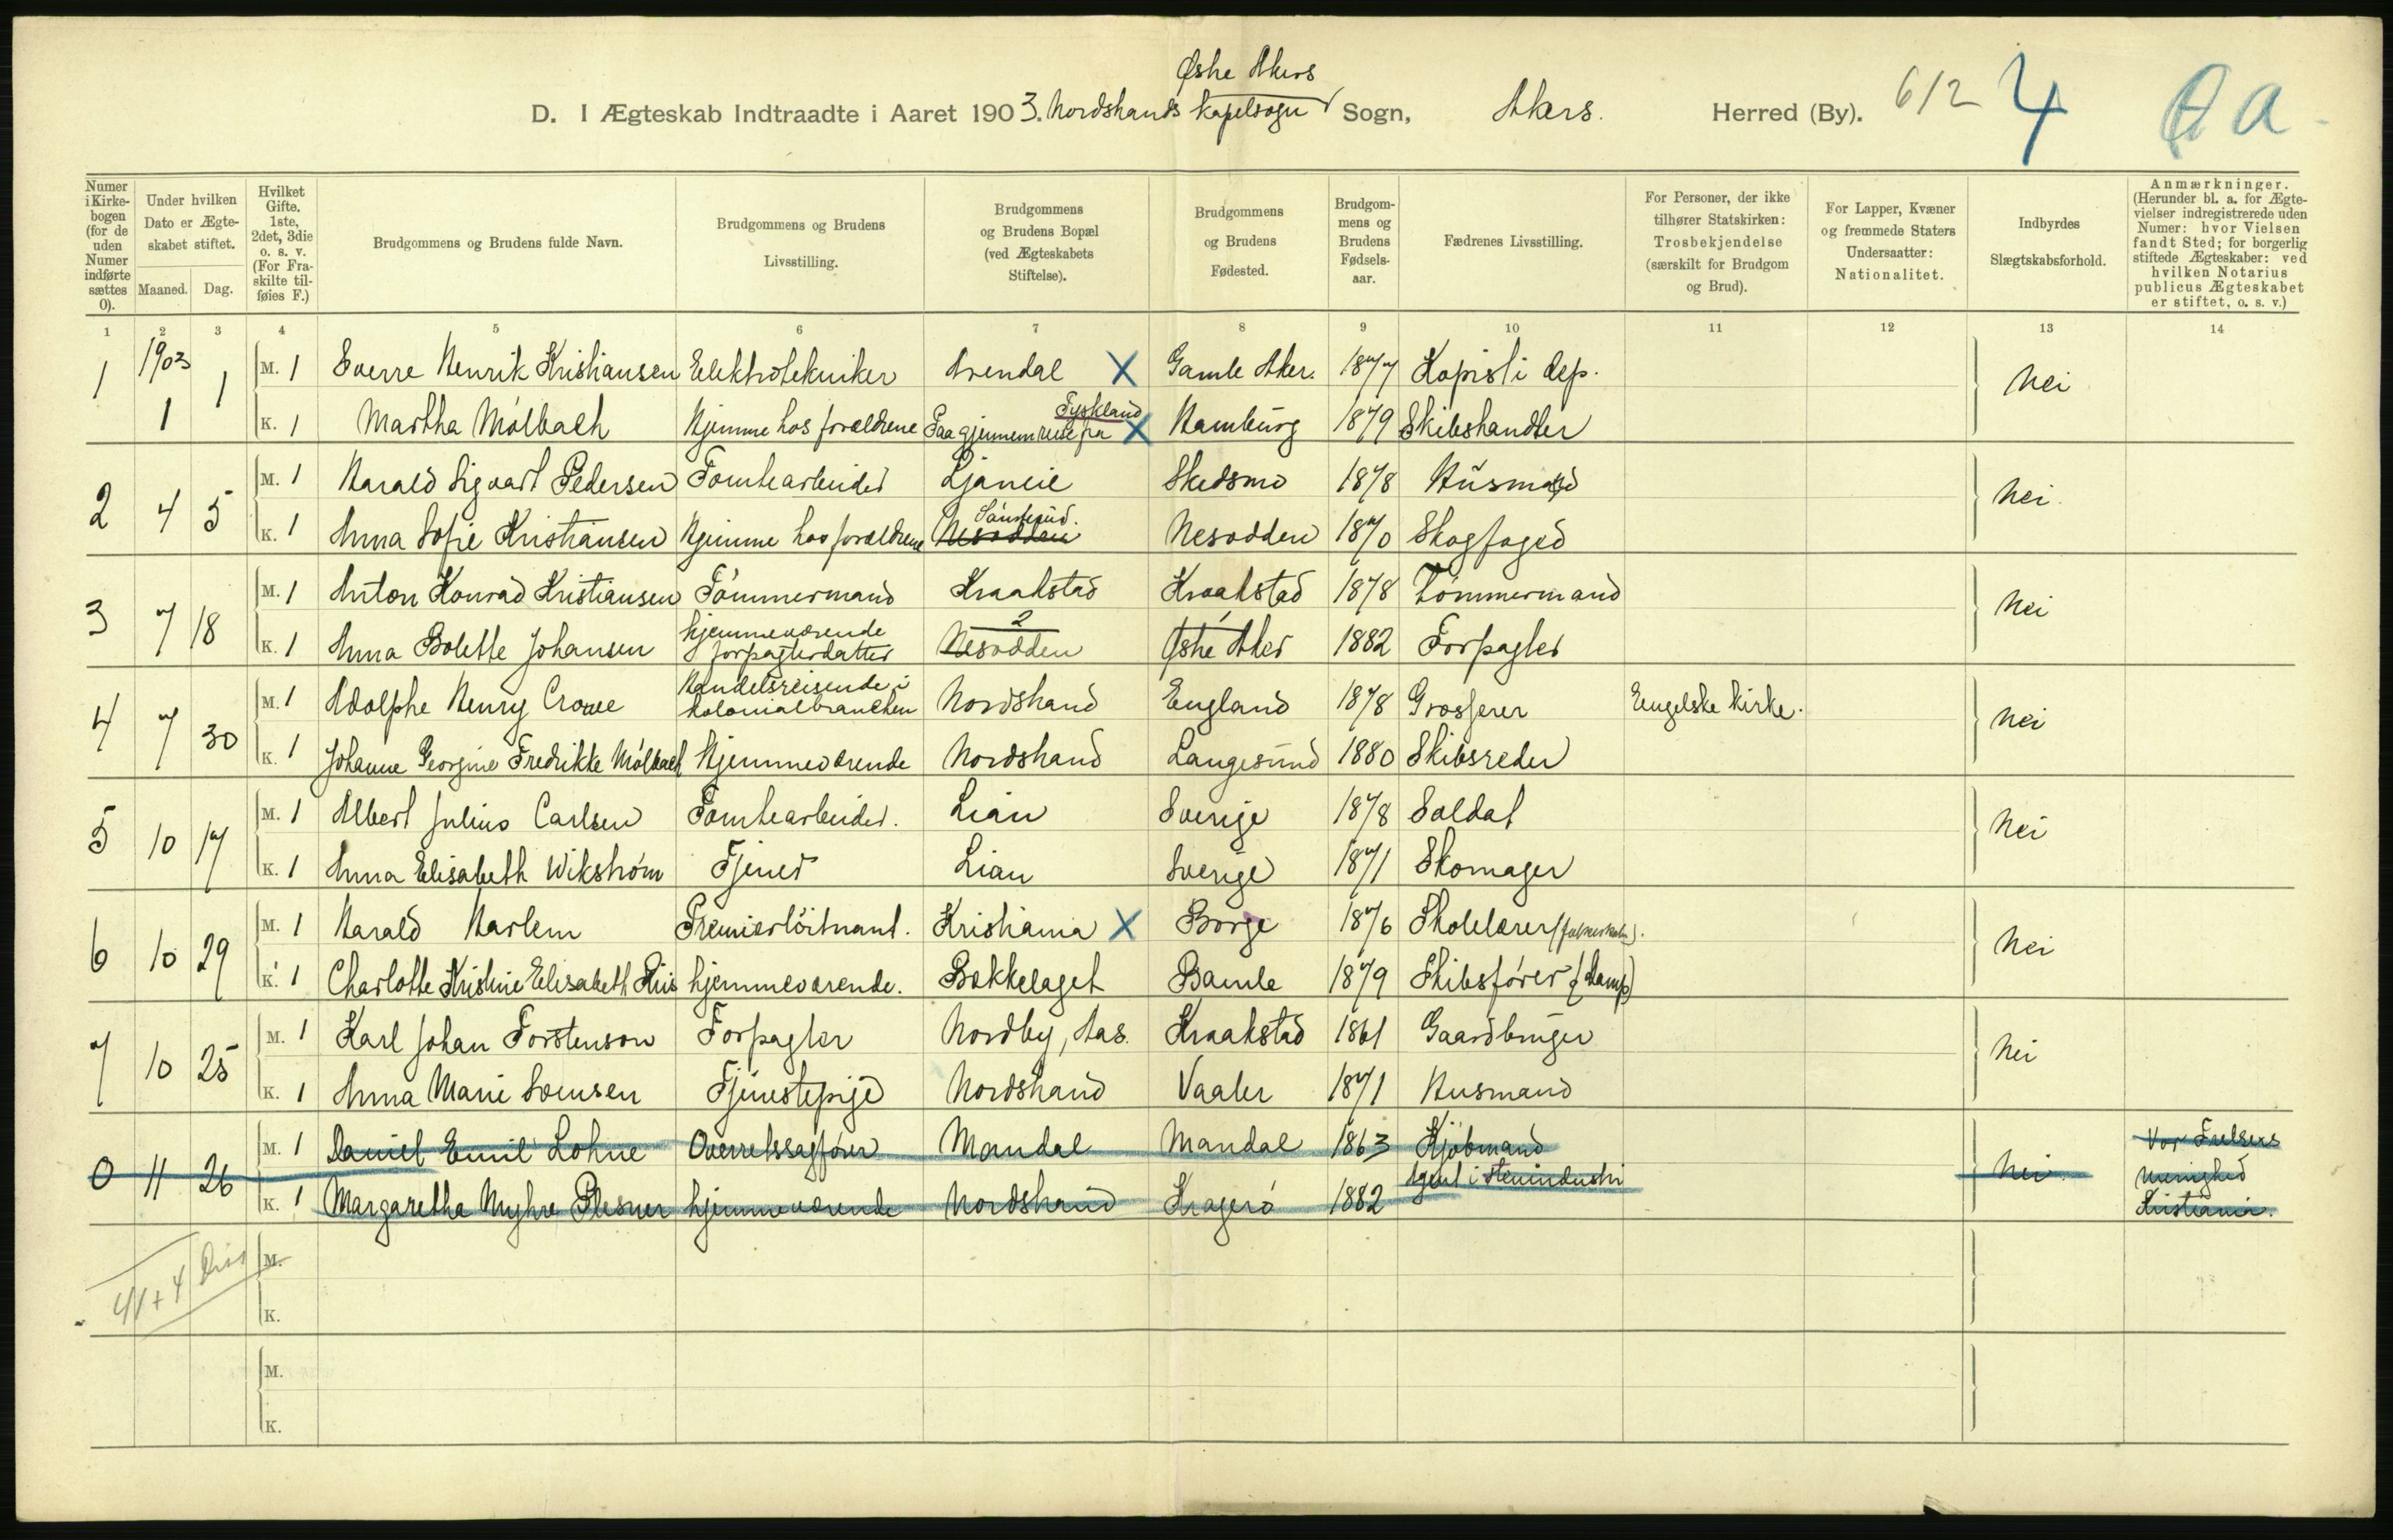 Østre Akers
D. I Ægteskab Indtraadte i Aaret 1903. Nordstrands kapelsogn Sogn, Akers. Herred (By). 612 4 a
Numer i Kirkebogen (for de uden Numer indførte sættes 0).
Under hvilken Dato er Ægteskabet stiftet.
Maaned. Dag.
Hvilket Gifte. 1ste, 2det, 3die o. s. v. (For Fraskilte tilføies F.)
Brudgommens og Brudens fulde Navn.
Brudgommens og Brudens Livsstilling.
Brudgommens og Brudens Bopæl (ved Ægteskabets Stiftelse).
Brudgommens og Brudens Fødested.
Brudgommens og Brudens Fødselsaar.
Fædrenes Livsstilling.
For Personer, der ikke tilhører Statskirken: Trosbekjendelse (særskilt for Brudgom og Brud).
For Lapper, Kvæner og fremmede Staters Undersaatter: Nationalitet.
Indbyrdes Slægtskabsforhold.
Anmærkninger. (Herunder bl. a. for Ægtevielser indregistrerede uden Numer: hvor Vielsen fandt Sted; for borgerlig stiftede Ægteskaber: ved hvilken Notarius publicus Ægteskabet er stiftet, o. s. v.)
1 2 3 4 5 6 7 8 9 10 11 12 13 14
1 1903 1 1 M. 1 Sverre Henrik Kristiansen Elektrotekniker Arendal X Gamle Aker. 1877 Kopist i dep. Nei
K. 1 Martha Mölbach Hjemme hos forældrene Paa gjennemreise fra Tyskland X Hamburg 1879 Skibshandler
2 4 5 M. 1 Harald Sigvart Pedersen Tomtearbeider Ljanei Skedsmo 1878 Husmand Nei.
K. 1 Anna Sofie Kristiansen Hjemme hos forældrene Nesodden Nesodden 1870 Skogfoged
3 7 18 M. 1 Anton Konrad Kristiansen Tömmermand Kraakstad Kraakstad 1878 Tömmermand Nei
K. 1 Anna Bolette Johansen hjemmeværende forpagterdatter 2 Nesodden Østre Aker 1882 Forpagter
4 7 30 M. 1 Adolphe Henry Crowe Handelsreisende i kolonialbranchen Nordstrand England 1878 Grosserer Engelske kirke. Nei
K. 1 Johanne Georgine Fredrikke Mölbach Hjemmeværende Nordstrand Langesund 1880 Skibsreder
5 10 17 M. 1 Albert Julius Carlsen Tomtearbeider. Lian Sverige 1878 Soldat Nei
K. 1 Anna Elisabeth Wikström Tjener Lian Sverige 1871 Skomager
6 10 29 M. 1 Harald Harlem Premierlöitnant. Kristiania X Borge 1876 Skolelærer Nei
K. 1 Charlotte Kristine Elisabeth Riis hjemmeværende. Bækkelaget Bamle 1879 Skibsfører (damp)
7 10 25 M. 1 Karl Johan Torstenson Forpagter Nordby, Aas. Kraakstad 1861 Gaardbruger Nei
K. 1 Anna Marie Svensen Tjenestepige Nordstrand Vaaler 1871 Husmand
0 11 26 M. 1 Daniel Emil Lohne Overretssagfører Mandal Mandal 1863 Kjöbmand Nei. Vor Frelsers menighed Kristiania.
K. 1 Margaretha Myhre Plesner hjemmeværende Nordstrand Kragerö 1882 Agent i Stenindustri
M.
K.
M.
K.